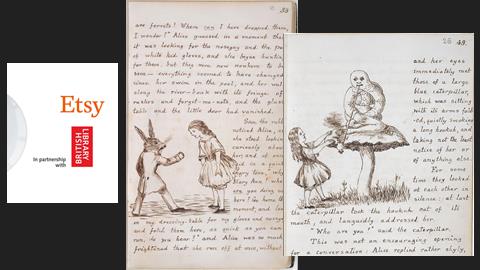 Etsy
In partnership
with
BRITISH
LIBRARY
33
are ferrets! Where can I have dropped them,
I wonder?" Alice guessed in a moment that
it was looking for the nosegay and the pair
of white kid gloves, and she began hunting
for them, but they were now nowhere to be
seen — everything seemed to have changed
since her swim in the pool, and her walk
along the river-bank with its fringe of
rushes and forget-me-nots, and the glass
table and the little door had vanished.
Soon the rabbit
noticed Alice, as
she stood looking
curiously about
her, and at once
said in a quick
angry tone, "why,
Mary Ann! what
are you doing out
here? Go home this
moment, and look
on my dressing-table for my gloves and nosegay,
and fetch them here, as quick as you can
run, do you hear?" and Alice was so much
frightened that she ran off at once, without
49.
and her eyes
immediately met
those of a large
blue caterpillar,
which was sitting
with its arms fold
-ed, quietly smoking
a long hookah, and
taking not the least
notice of her or
of anything else.
For some
time they looked
at each other in
silence: at last
the caterpillar took the hookah out of its
mouth, and languidly addressed her.
"Who are you?" said the caterpillar.
This was not an encouraging opening
for a conversation: Alice replied rather shyly,